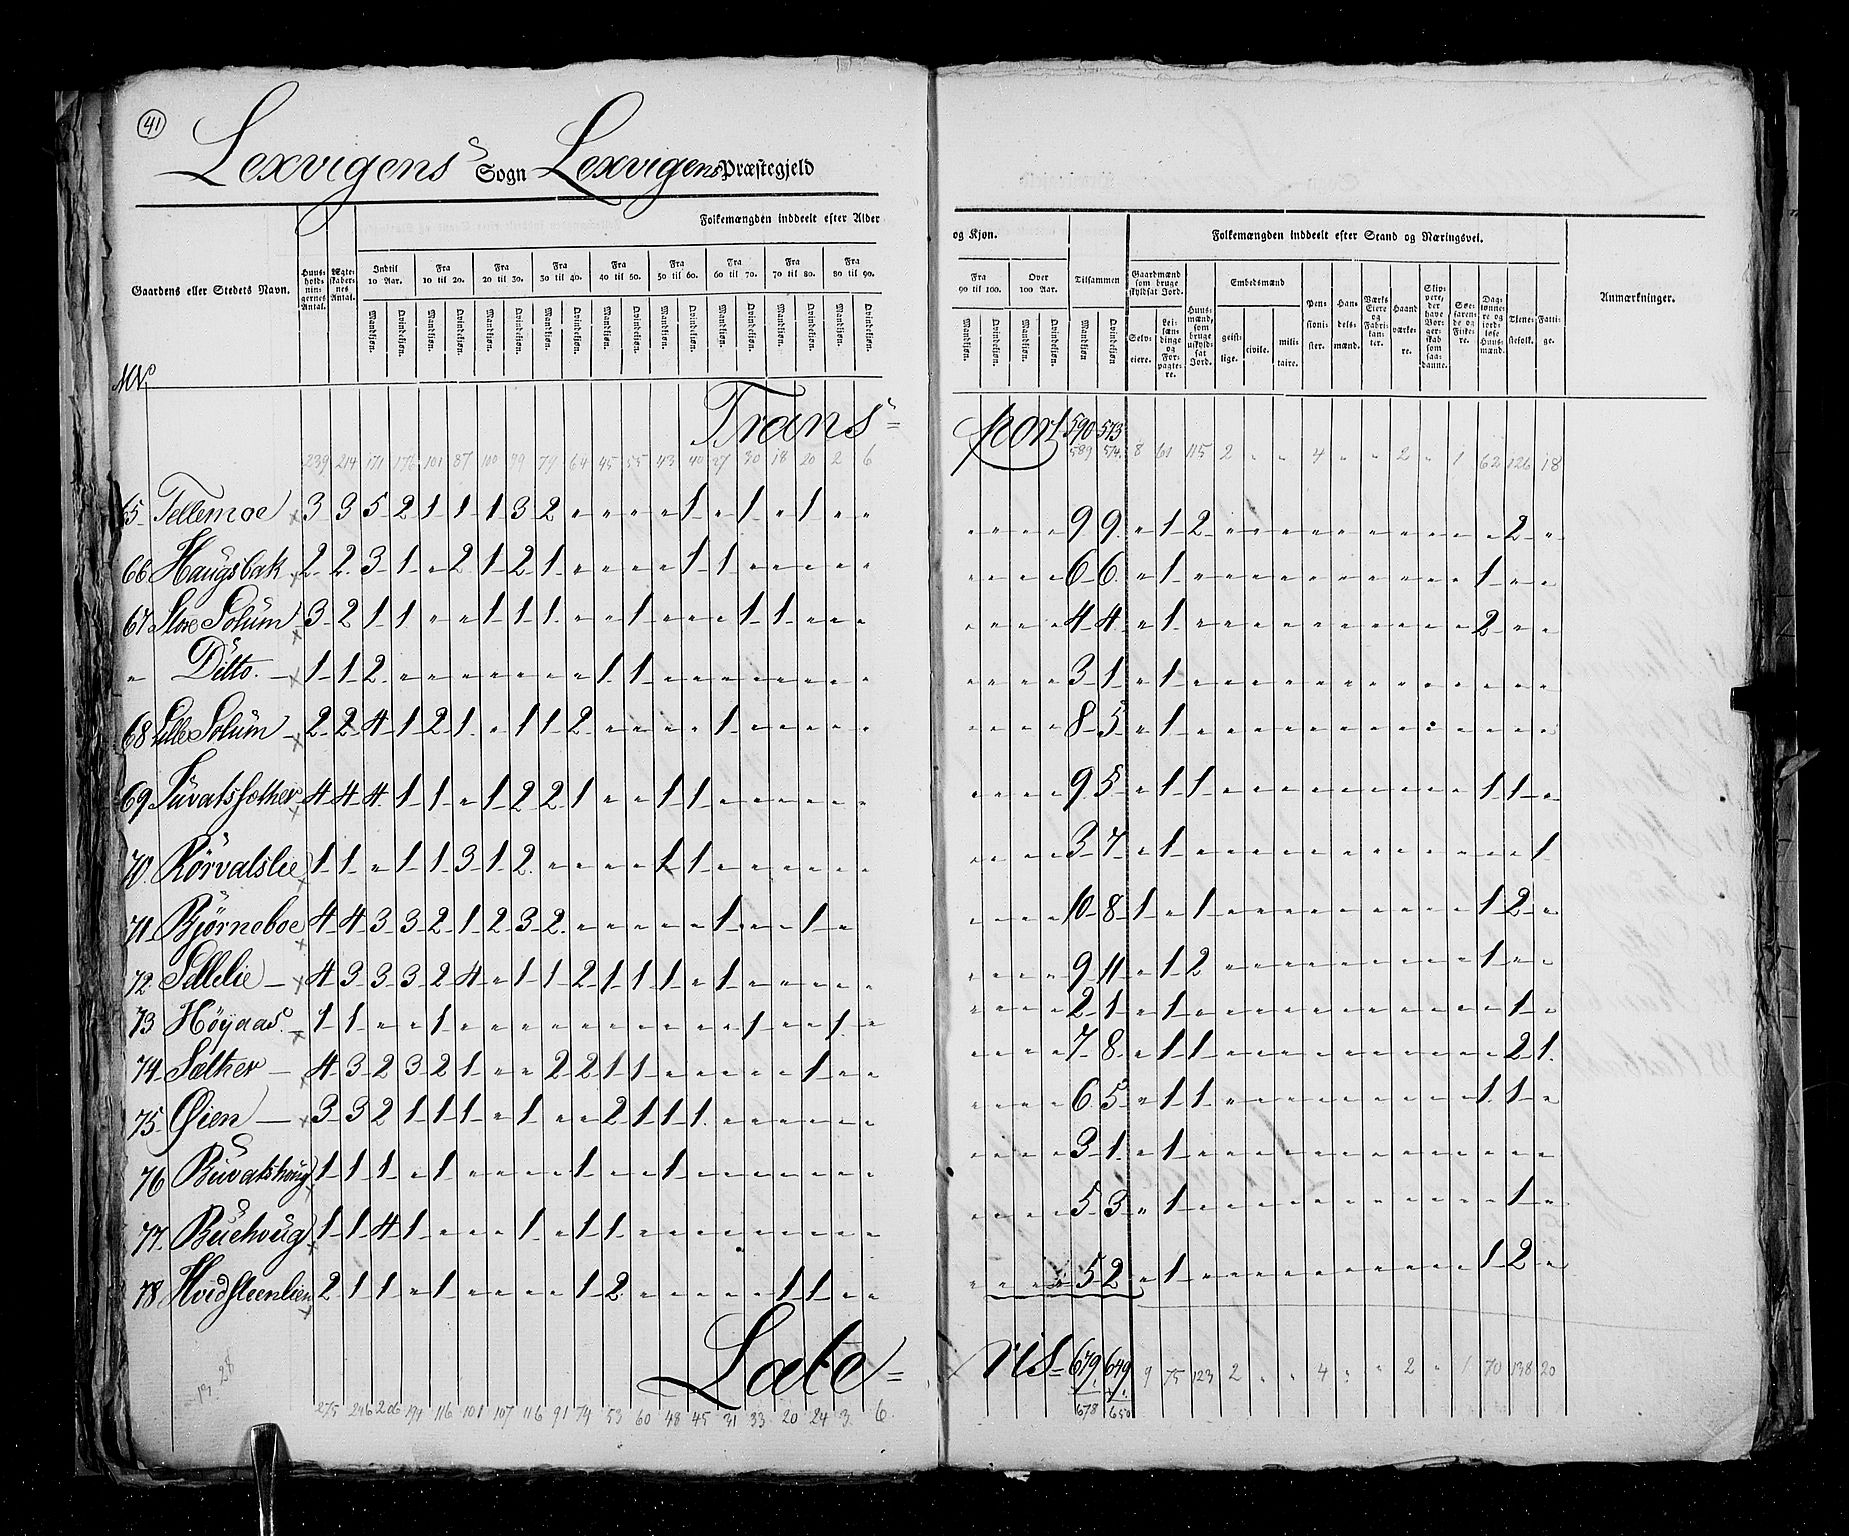 41
Lexvigens Sogn Lexvigens Præstegjeld
Gaardens eller Stedets Navn. Huusholdningernes Antal. Ægteskabernes Antal. Folkemængden inddeelt efter Alder og Kjøn. Tilsammen Folkemængden inddeelt efter Stand og Næringsvei. Anmærkninger.
Indtil 10 Aar. Fra 10 til 20. Fra 20 til 30. Fra 30 til 40. Fra 40 til 50. Fra 50 til 60. Fra 60 til 70. Fra 70 til 80. Fra 80 til 90. Fra 90 til 100. Over 100 Aar.
Mandkiøn. Qvindekiøn. Mandkiøn. Qvindekiøn. Mandkiøn. Qvindekiøn. Mandkiøn. Qvindekiøn. Mandkiøn. Qvindekiøn. Mandkiøn. Qvindekiøn. Mandkiøn. Qvindekiøn. Mandkiøn. Qvindekiøn. Mandkiøn. Qvindekiøn. Mandkiøn. Qvindekiøn. Mandkiøn. Qvindekiøn. Mandkiøn. Qvindekiøn.
Gaardmænd som bruge skyldsat Jord. Selveiere. Leilændinge og Forpagtere. Huusmænd, som bruge uskyldsat Jord. Embedsmænd geistlige. civile. militaire. Pensionister. Handelsmænd. Værks Eiere og Fabrikanter. Haandværkere. Skippere, der have Borgerskab som saadanne. Søefarende og Fiskere. Daglønnere og jordløse Huusmænd. Tjenestefolk. Fattige.
Trans= port 590 573
239 214 171 176 101 87 100 99 79 64 45 55 43 40 27 30 18 20 2 6 589 574 8 61 115 2 " " 4 " " 2 " 1 62 126 18
65 Tellemoe 3 3 5 2 1 1 1 3 2 " " " " 1 " 1 " 1 " " " " " " 9 9 " 1 2 " " " " " " " " " " 2 "
66 Haugsbak 2 2 3 1 " 2 1 2 1 " " " " 1 1 " " " " " " " " " 6 6 " 1 " " " " " " " " " " 1 " "
67 Store Solum 3 2 1 1 " " 1 1 1 " " 1 " " " 1 1 " " " " " " " 4 4 " 1 " " " " " " " " " " 2 " "
" Ditto. 1 1 2 " " " " " " " 1 1 " " " " " " " " " " " " 3 1 " 1 " " " " " " " " " " " " "
68 Lille Solum 2 2 4 1 2 1 " 1 1 2 " " " " 1 " " " " " " " " " 8 5 " 1 " " " " " " " " " " " " "
69 4 4 4 1 1 " 1 2 2 1 " " 1 1 " " " " " " " " " " 9 5 " 1 1 " " " " " " " " " 1 1 "
70 Rörvalslie 1 1 " 1 1 3 1 2 " " " " 1 1 " " " " " " " " " " 3 7 " 1 " " " " " " " " " " " " 1
71 Bjørneboe 4 4 3 3 2 1 2 3 2 " " " " " 1 " " 1 " " " " " 10 8 1 " 1 " " " " " " " " " 1 2 "
72 Sellelie 4 3 3 3 2 4 " 1 1 2 1 1 1 " 1 " " " " " " " " " 9 11 " 1 2 " " " " " " " " " 1 " "
73 Høyaas 1 1 " " 1 " " " " " " " " " " 1 " " 1 " " " " " 2 1 " 1 " " " " " " " " " " 1 "
74 Sæther 4 3 2 3 2 1 " " 2 2 1 1 " " " " " 1 " " " " " " 7 8 " 1 1 " " " " " " " " " " 2 1
75 Øien 3 3 2 1 1 1 " 1 " " 2 1 1 1 " " " " " " " " " " 6 5 " 1 1 " " " " " " " " " 1 1 "
76 Buvatshoug 1 1 1 " 1 " " " " 1 " " 1 " " " " " " " " " " " 3 1 " 1 " " " " " " " " " " " " "
77 Buehoug 1 1 4 1 " " " 1 " 1 1 " " " " " " " " " " " " " 5 3 " 1 " " " " " " " " " " " 1 "
78 Hvidsteenlien 2 1 1 " 1 " " " " 1 2 " " " " " 1 1 " " " " " " 5 2 " 1 " " " " " " " " " " 1 2 "
Late= ris 679 649 9 75 123 2 " " 4 " " 2 " 1 70 138 20
275 246 206 194 116 101 107 116 91 74 53 60 48 45 31 33 20 24 3 6 678 650